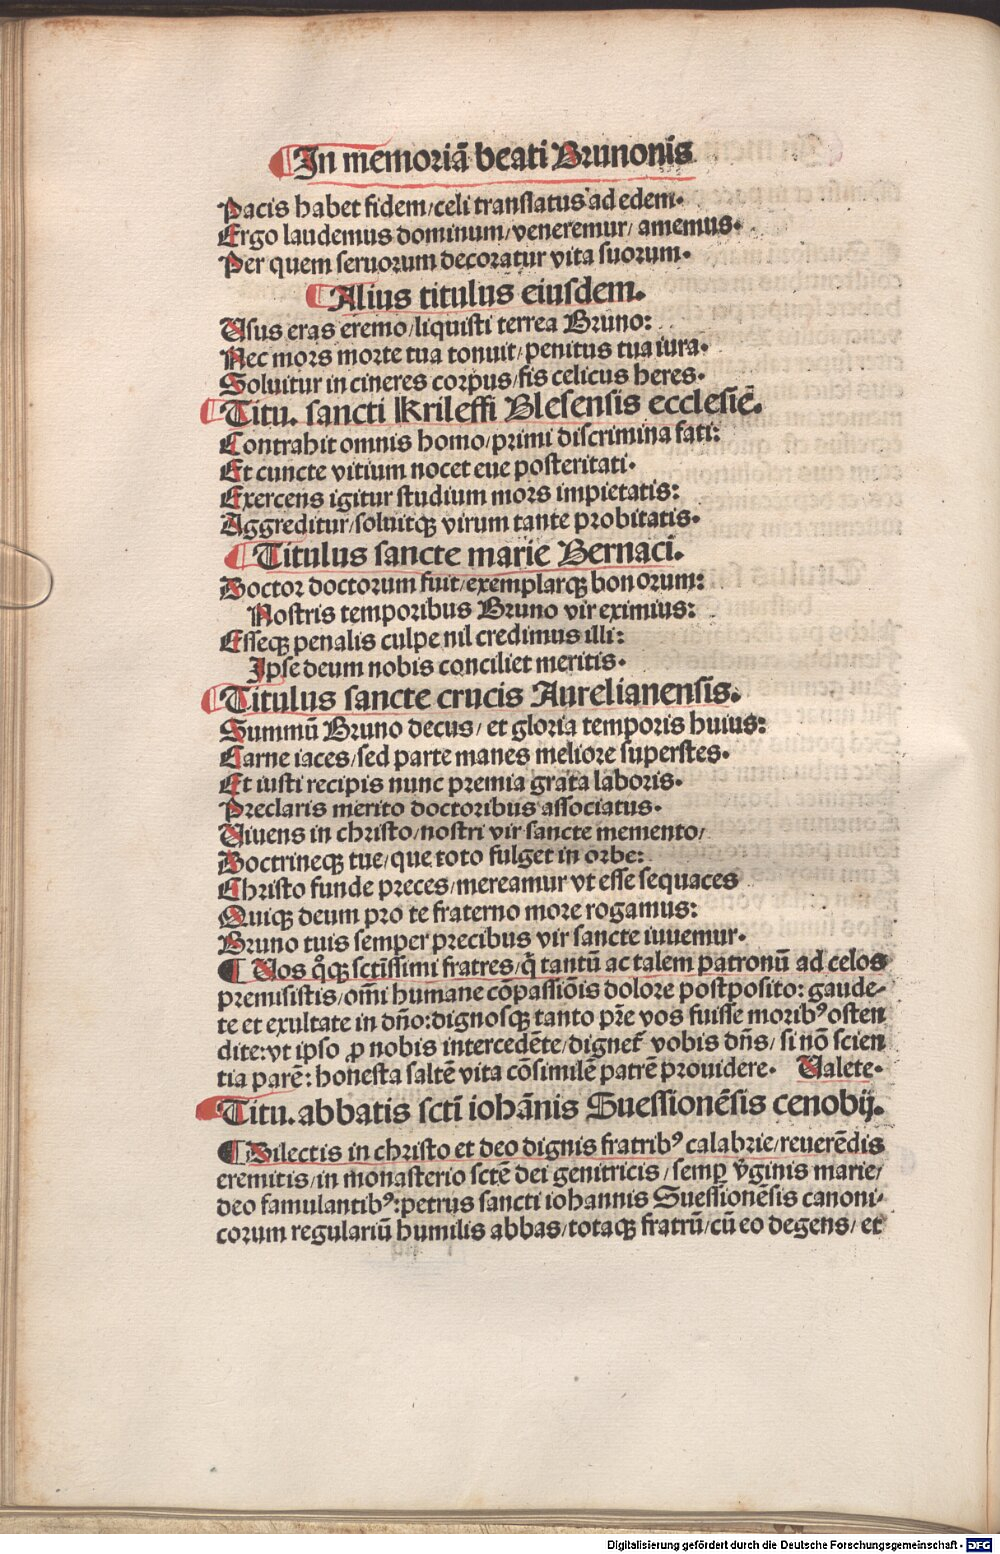 In memoriā beati Brunonis
Pacis habet fidem/celi translatus ad edem.
Ergo laudemus dominum/veneremur/ amemus.
Per quem seruorum decoratur vita suorum.
Alius titulus eiusdem.
Usus eras eremo/liquisti terrea Bruno:
Nec mors morte tua tonuit/penitus tua iura.
Soluitur in cineres corpus/fis celicus heres.
Titu. sancti Krileffi Blesensis ecclesiē.
Contrahit omnis homo/primi discrimina fati:
Et cuncte vitium nocet eue posteritati.
Exercens igitur studium mors impietatis:
Aggreditur/soluitqꝫ virum tante probitatis.
Titulus sancte marie Bernaci.
Doctor doctorum fuit/exemplarqꝫ bonorum:
Nostris temporibus Bruno vir eximius:
Esseqꝫ penalis culpe nil credimus illi:
Ipse deum nobis conciliet meritis.
Titulus sancte crucis Aurelianensis.
Summū Bruno decus/ et gloria temporis huius:
Carne iaces/sed parte manes meliore superstes.
Et iusti recipis nunc premia grata laboris.
Preclaris merito doctoribus associatus.
Uiuens in christo/nostri vir sancte memento/
Doctrineqꝫ tue/que toto fulget in orbe:
Christo funde preces/mereamur vt esse sequaces
Quiqꝫ deum pro te fraterno more rogamus:
Bruno tuis semper precibus vir sancte iuuemur.
¶ Uos qͦqꝫ sctīssimi fratres/q̄ tantū ac talem patronū ad celos
premisistis/om̄i humane cōpassiōis dolore postposito: gaude-
te et exultate in dn̄o:dignosqꝫ tanto pr̄e vos fuisse moribꝰ osten
dite:vt ipso ꝓ nobis intercedēte/dignet᷑ vobis dn̄s/ si nō scien
tia parē: honesta saltē vita cōsimilē patrē prouidere. Ualete.
Titu. abbatis sctī iohānis Suessionēsis cenobij.
¶ Dilectis in christo et deo dignis fratribꝰ calabrie/reuerēdis
eremitis/in monasterio sctē dei genitricis/semꝑ v̄ginis marie/
deo famulantibꝰ:petrus sancti iohannis Suessionēsis canoni/
corum regulariū humilis abbas/totaqꝫ fratrū/cū eo degens/ et
Digitalisierung gefördert durch die Deutsche Forschungsgemeinschaft - DFG